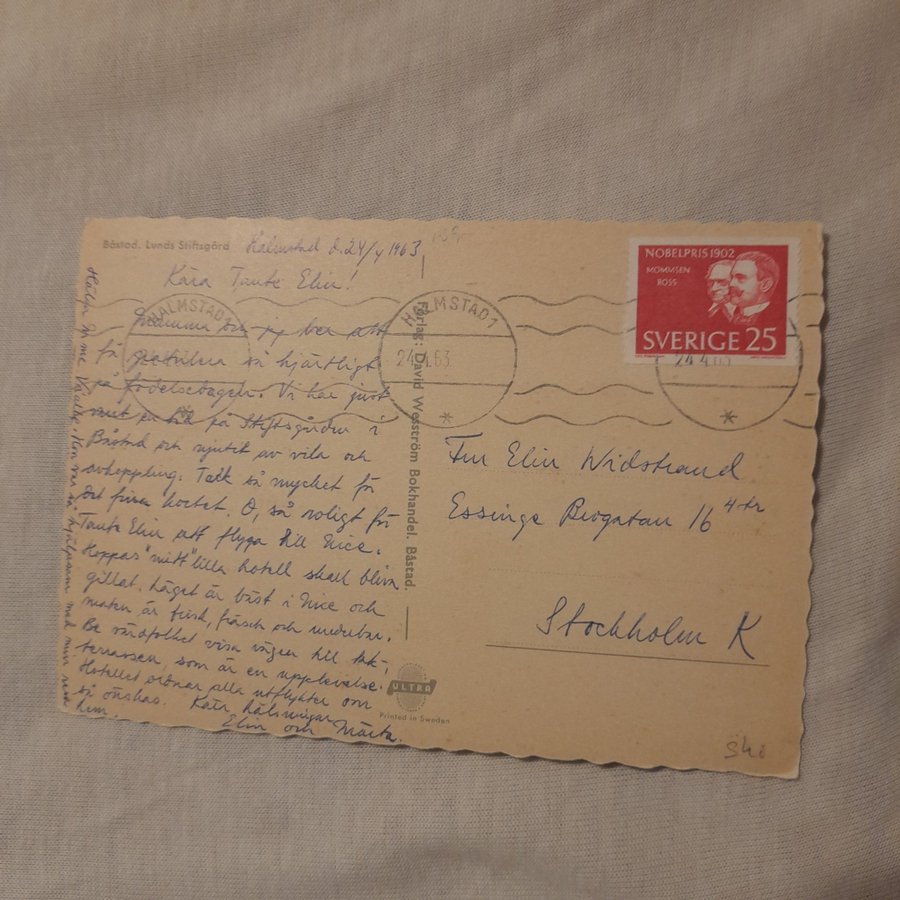 Båstad. Lunds Stiftsgård
Halmstad d. 24/4 1963
Kära Tante Elin!
Mamma och jag ber att
få gratulera så hjärtligt
på födelsedagen. Vi har just
varit en tid på Stiftsgården i
Båstad och njutit av vila och
avkoppling. Tack så mycket för
det fina kortet. O, så roligt för
Tante Elin att flyga till Nice.
Hoppas "mitt" lilla hotell skall bliva
gillat. Läget är bäst i Nice och
maten är frisk, fräsch och underbar.
Be värdfolket visa vägen till tak-
terrassen, som är en upplevelse.
Hotellet ordnar alla utflykter om
så önskas. Kära hälsningar
Elin och Märta.
Hälsa Mme Hon var så hjälpsam med min resa
hem.
Förlag: David Wesström Bokhandel. Båstad.
ULTRA
Printed in Sweden
NOBELPRIS 1902
MOMMSEN
ROSS
SVERIGE 25
HALMSTAD 1
HALMSTAD 1
24.4.63
24.4.63
Fru Elin Widstrand
Essinge Brogatan 16 4 tr
Stockholm K